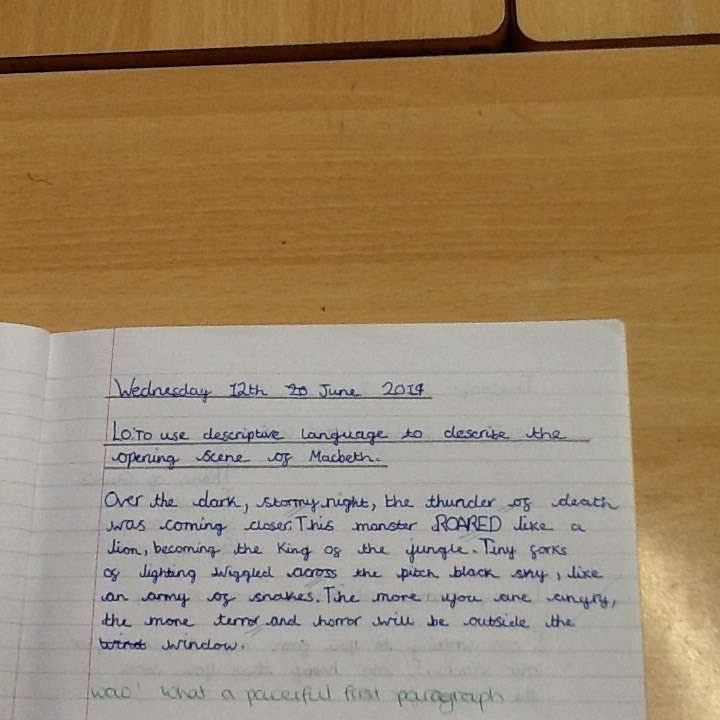 Wednesday 12th June 2019
L.O:To use descriptive language to describe the
opening scene of Macbeth.
Over the dark, stormy night, the thunder of death
was coming closer. This monster ROARED like a
lion, becoming the King of the jungle. Tiny forks
of lighting wiggled across the pitch black sky, like
an army of snakes. The more you are angry,
the more terror and horror will be outside the
window.
wao! what a pacerful first paragraph